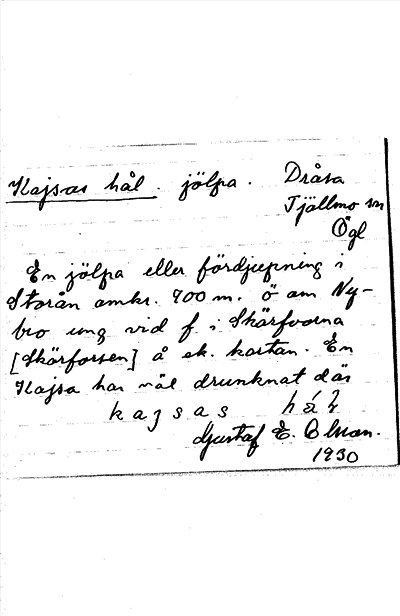 Kajsas hål. jölpa. Dråsa
Tjällmo sn
Ögl
En jölpa eller fördjupning i
Storån omkr. 700 m. ö om Ny-
bro ung vid f i Skärfvorna
[Skärforsen] å ek. kartan. En
Kajsa har väl drunknat där
kajsas
Gustaf E. Olsson.
1930